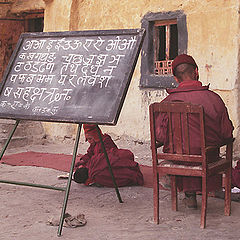 अ आ इ ई उ ऊ ए ऐ ओ औ
क ख ग घ ङ च छ ज झ ञ
ट ठ ड ढ ण त थ द ध न
प फ ब भ म य र ल व श
ष स ह क्ष त्र ज्ञ